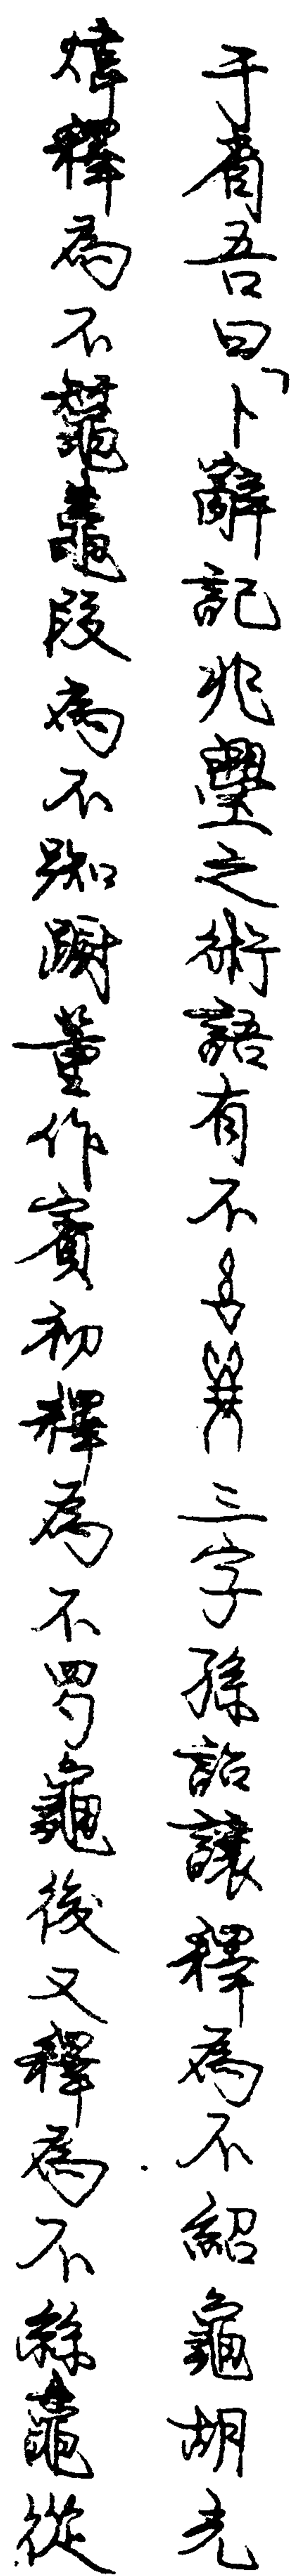 于省吾曰「卜辭記兆璺之術語有不三字孫詒讓釋為不紹龜胡光
煒釋為不鼅鼄段為不踟躕董作賓初釋為不𦊰龜後又釋為不䋣鼄從